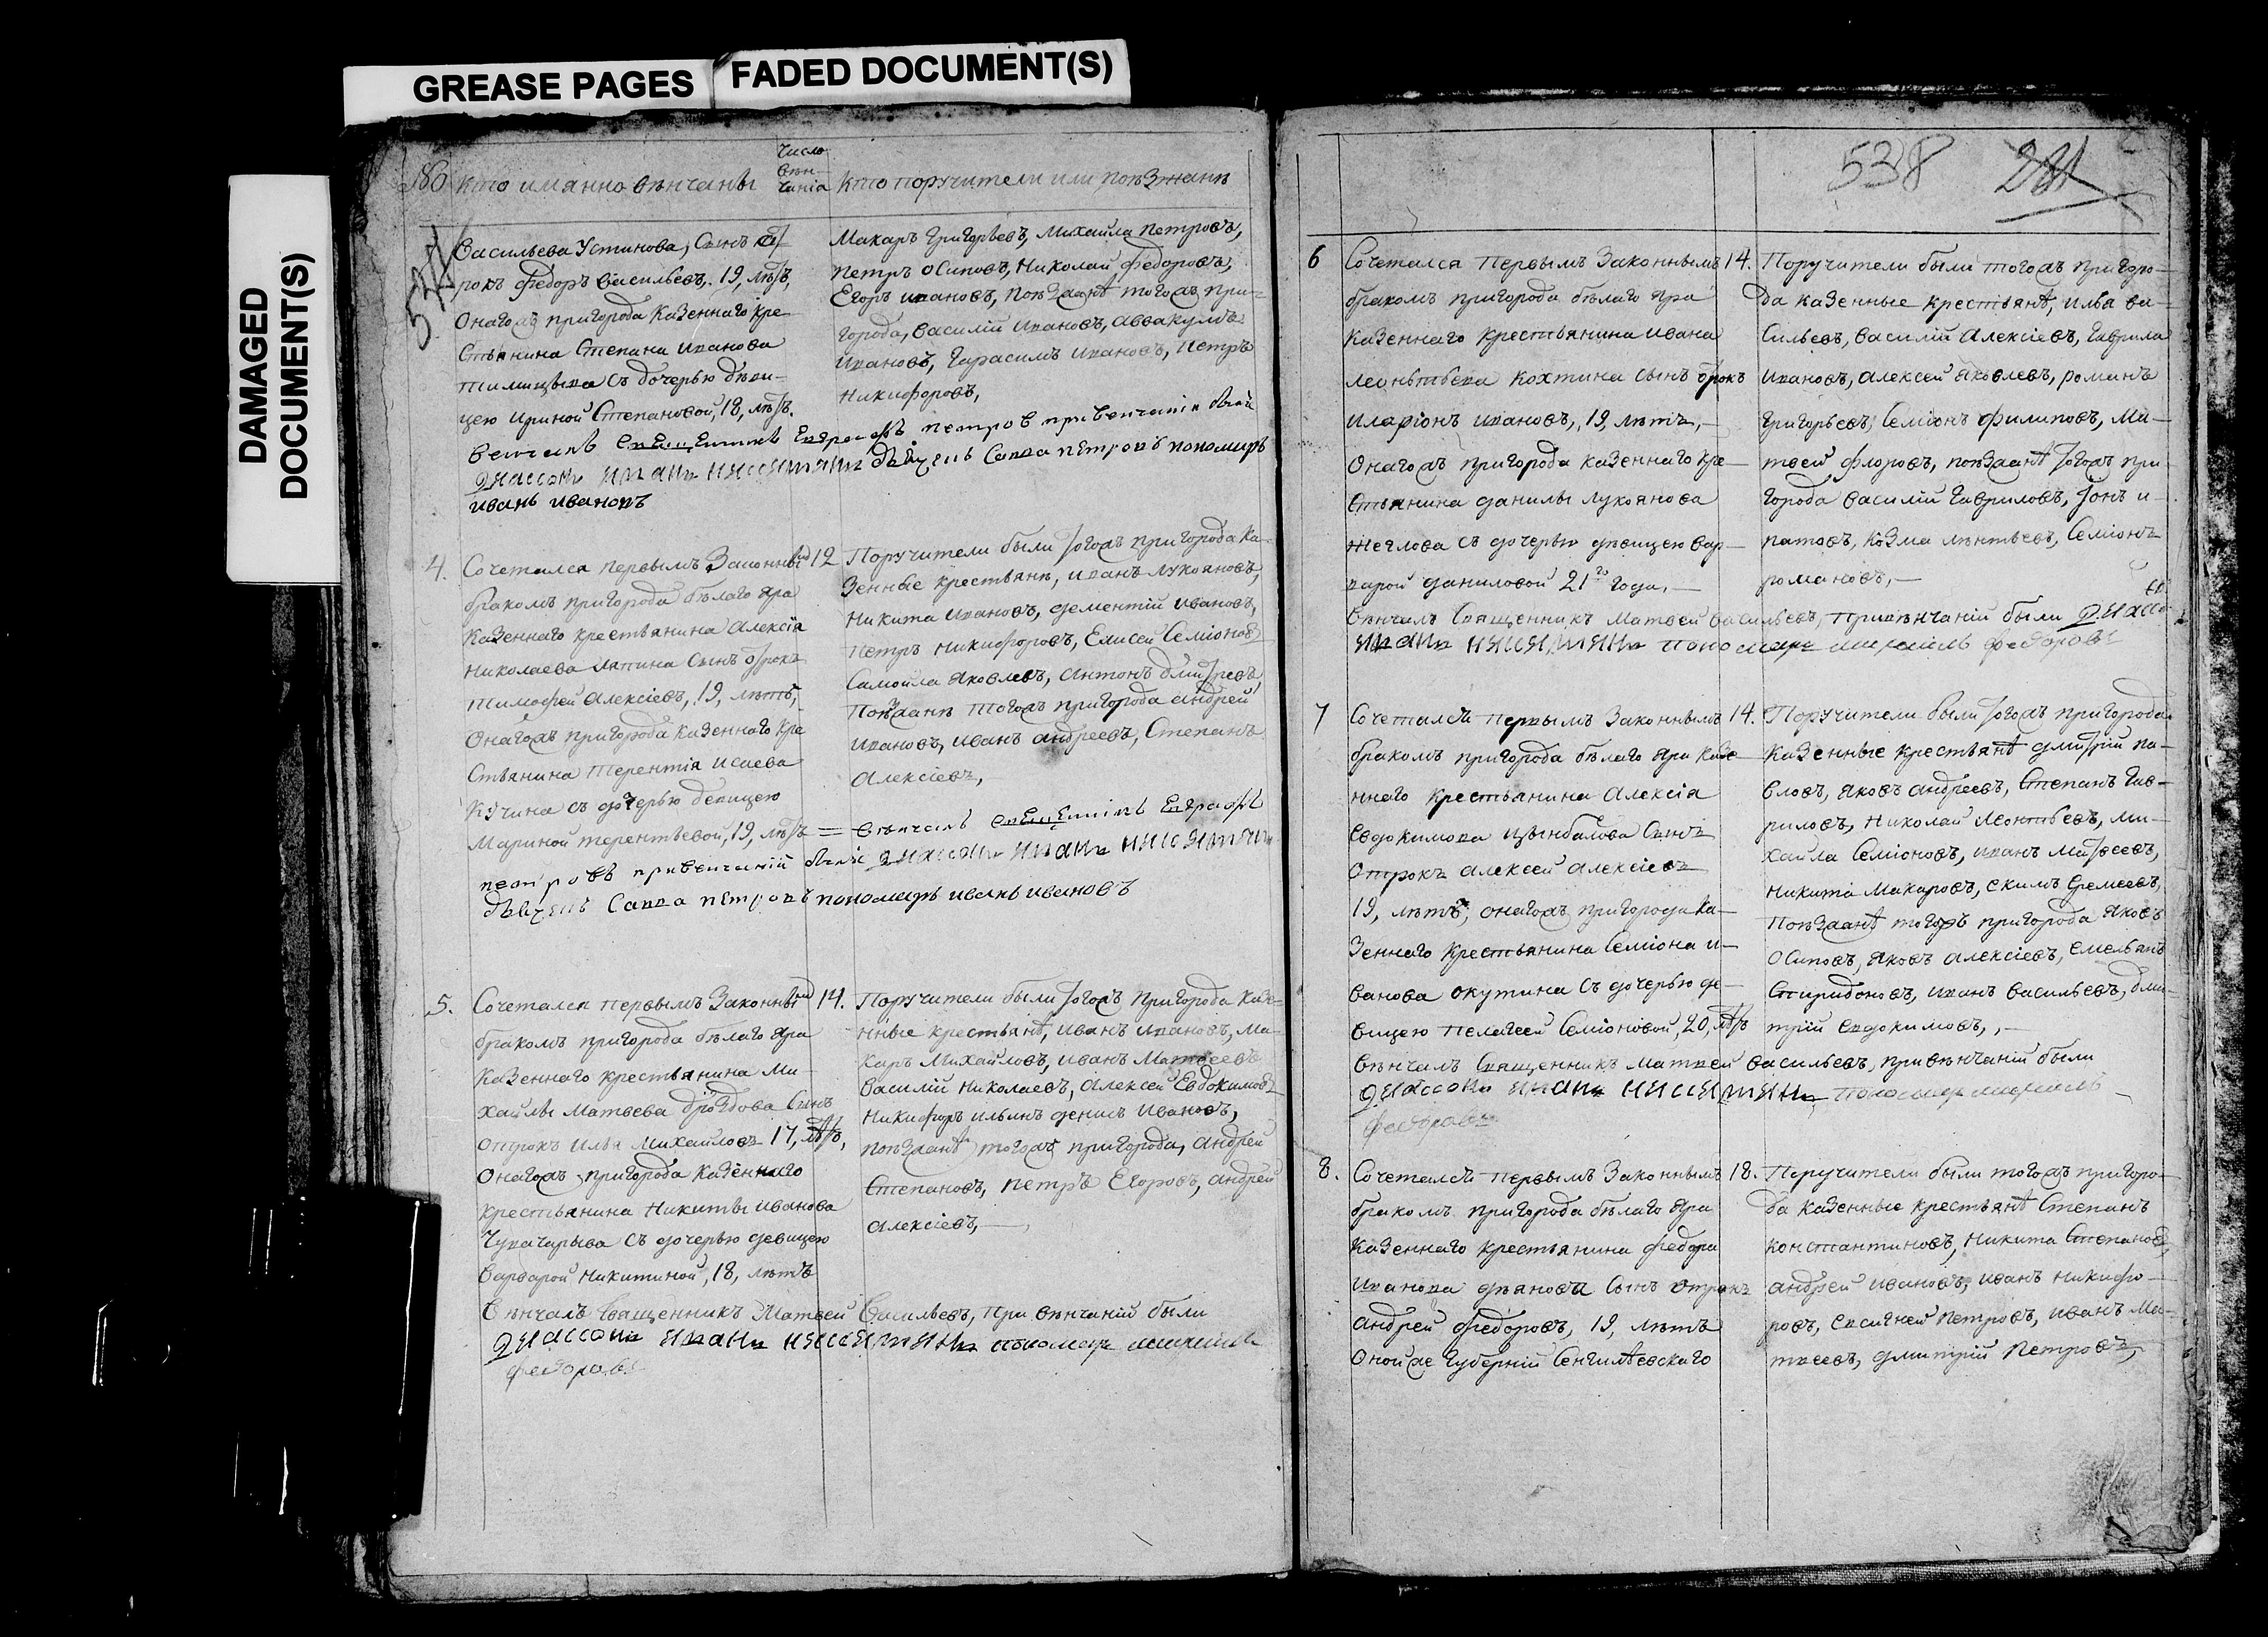 GREASE PAGES
FADED DOCUMENT(S)
DAMAGED
DOCUMENT(S)
кто имянно венчаны
число
вѣн-
чанiа
кто поручители или поѣзжанѣ
Васильева Устинова, Сынъ от-
рокъ Федоръ Васильевъ, 19, лѣтъ,
Онагожъ пригорода Казеннаго кре-
стьянина Степана Иванова
съ дочерью дѣви-
цею Ириной Степановой, 18, лѣтъ.
Макаръ Григорьевъ, Михайла Петровъ,
Петръ Осиповъ, Николай Федоровъ,
Егоръ Ивановъ, Поѣзжанѣ тогожъ при-
города, Василiй Ивановъ, Аввакумъ
Ивановъ, Гарасимъ Ивановъ, Петръ
Никифоровъ,
Венчалъ Священникъ Евграфъ Петровъ при венчанiи были
дiаконъ дьячекъ Савва Петровъ пономарь
Иванъ Ивановъ
4.
Сочетался первымъ Законнымъ
бракомъ пригорода бѣлаго Яра
Казеннаго крестьянина Алексiя
Николаева Лапина Сынъ отрокъ
Тимофей Алексiевъ, 19, лѣтъ,
Онагожъ пригорода Казеннаго Кре
стьянина Терентiя Исаева
Кучина съ дочерью девицею
Мариной Терентьевой, 19, лѣтъ =
12
Поручители были тогожъ пригорода Ка-
зенные крестьянѣ, Иванъ Лукояновъ,
Никита Ивановъ, Дементiй Ивановъ,
Петръ Никифоровъ, Елисей Семiоновъ
Самойла Яковлевъ, Антонъ Дмитревъ,
Поѣзжанѣ тогожъ пригорода Андрей
Ивановъ, Иванъ Андреевъ, Степанъ
Алексiевъ,
Вѣнчалъ Священникъ Евграфъ
Петровъ при венчанiй были
дьячекъ Савва Петровъ пономарь Иванъ Ивановъ
5.
Сочетался первымъ Законнымъ
бракомъ пригорода бѣлаго Яра
Казеннаго крестьянина Ми-
хайлы Матвеева Дроздова Сынъ
отрокъ Илья Михаиловъ 17, лѣтъ,
Онагожъ пригорода Казеннаго
крестьянина Никиты Иванова
съ дочерью девицею
Варварой Никитиной, 18, лѣтъ
14.
Поручители были тогожъ Пригорода Казе-
нные крестьянѣ, Иванъ Ивановъ, Ма-
каръ Михайловъ, Иванъ Матвеевъ
Василiй Николаевъ, Алексей Евдокимовъ
Никифоръ Ильинъ Денисъ Ивановъ,
поѣзжанѣ тогожъ пригорода, Андрей
Степановъ, Петръ Егоровъ, Андрей
Алексiевъ,
Вѣнчалъ Священникъ Матвей Васильевъ, при вѣнчанiй были
пономарь
Федоровъ
538
6
Сочетался первымъ Законнымъ
бракомъ пригорода бѣлаго Яра
Казеннаго крестьянина Ивана
Леонтьева Кохтина сынъ отрокъ
Иларiонъ Ивановъ, 19, лѣтъ,
Онагожъ пригорода казеннаго кре-
стьянина Данилы Лукоянова
Жеглова съ дочерью девицею Вар-
варой Даниловой 21го года.
14.
Поручители были тогожъ пригоро-
да казенные крестьянѣ, Илья Ва-
сильевъ, Василiй Алексiевъ, Гаврила
Ивановъ, Алексей Яковлевъ, Романъ
Григорьевъ, Семiонъ Филиповъ, Ма-
твей Флоровъ, поѣзжанѣ тогожъ при
города Василiй Гавриловъ,
Козма Семiонъ
Романовъ,
Вѣнчалъ Священникъ Матвей Васильевъ, при вѣнчанiй были
пономарь Федоровъ
7
Сочетался первымъ Законнымъ
бракомъ пригорода бѣлаго Яра Казе-
ннаго крестьянина Алексiя
Евдокимова Цынбалова Сынъ
Отрокъ Алексей Алексiевъ
19, лѣтъ, онагожъ пригорода ка-
зеннаго крестьянина Семiона И-
ванова Окутина съ дочерью де-
вицею Пелагеей Семiоновой, 20, лѣтъ
14.
Поручители были тогожъ пригорода
Казенные крестьянѣ Дмитрiй Па-
вловъ, Яковъ Андреевъ, Степанъ Гав-
риловъ, Николай Леонтьевъ, Ми-
хайла Семiоновъ, Иванъ Матвеевъ,
Никита Макаровъ, Еремеевъ,
Поѣзжанѣ тогожъ пригорода Яковъ
Осиповъ, Яковъ Алексiевъ, Емельянъ
Спиридоновъ, Иванъ Васильевъ, Дми-
трiй Евдокимовъ,
Вѣнчалъ Священникъ Матвей Васильевъ, при вѣнчанiй были
Федоровъ
8.
Сочетался первымъ Законнымъ
бракомъ пригорода бѣлаго Яра
Казеннаго крестьянина Федора
Иванова Сынъ отрокъ
Андрей Федоровъ, 19, лѣтъ
Оной же Губернiй Сенгилѣевскаго
18.
Поручители были тогожъ пригоро-
да казенные крестьянѣ Степанъ
Константиновъ, Никита Степановъ,
Андрей Ивановъ, Иванъ Никифо-
ровъ, Евсигней Петровъ, Иванъ Ма-
твеевъ, Дмитрiй Петровъ,